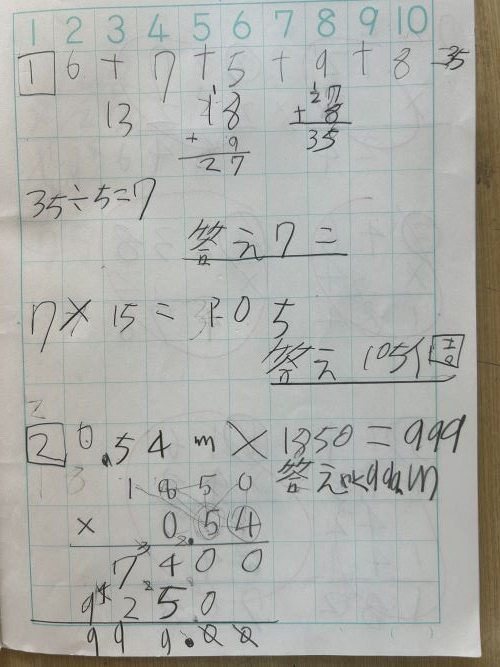 1 2 3 4 5 6 7 8 9 10
1 6 + 7 + 5 + 9 + 8 35
13
18
+ 9
27
27
+ 8
35
35÷5=7
答え7こ
7×15=105
答え 105個
2 0.54m×1850=999
答え 999m
1850
× 0.54
7400
9250
999.00